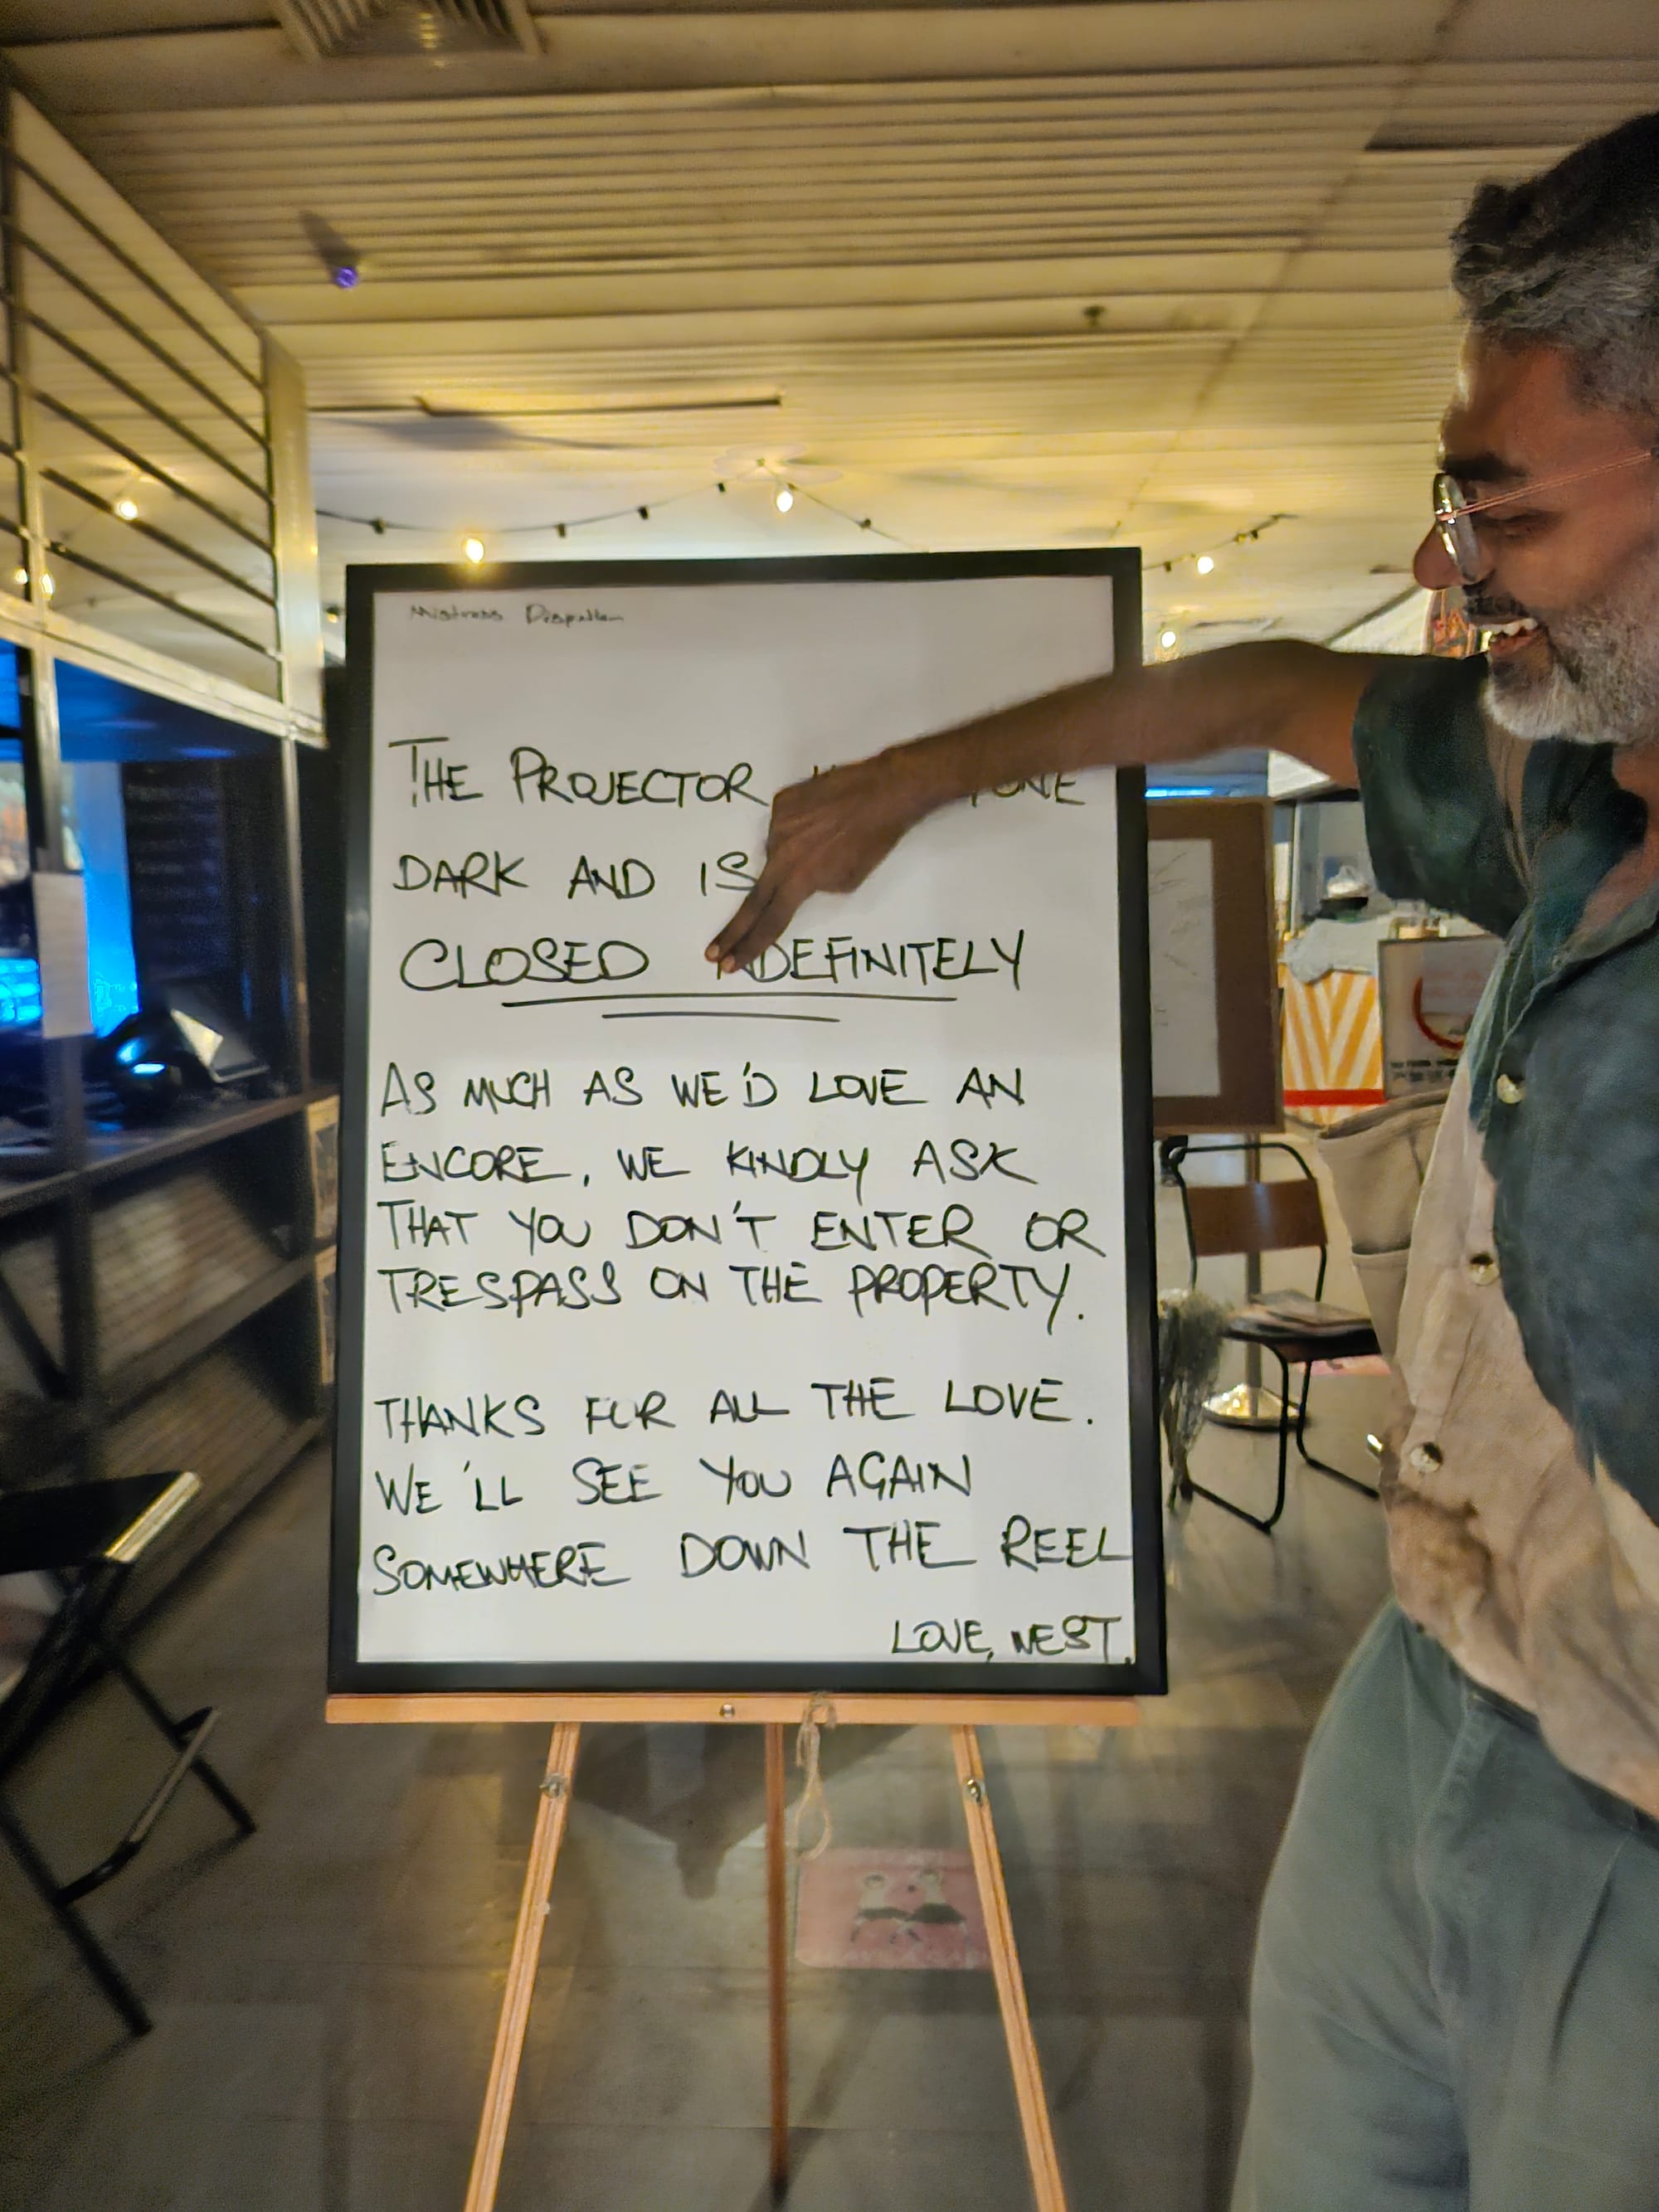 Mistress Dispeller
THE PROJECTOR
DARK AND IS
CLOSED INDEFINITELY
AS MUCH AS WE'D LOVE AN
ENCORE, WE KINDLY ASK
THAT YOU DON'T ENTER OR
TRESPASS ON THE PROPERTY.
THANKS FOR ALL THE LOVE.
WE'LL SEE YOU AGAIN
SOMEWHERE DOWN THE REEL
LOVE, NEST.